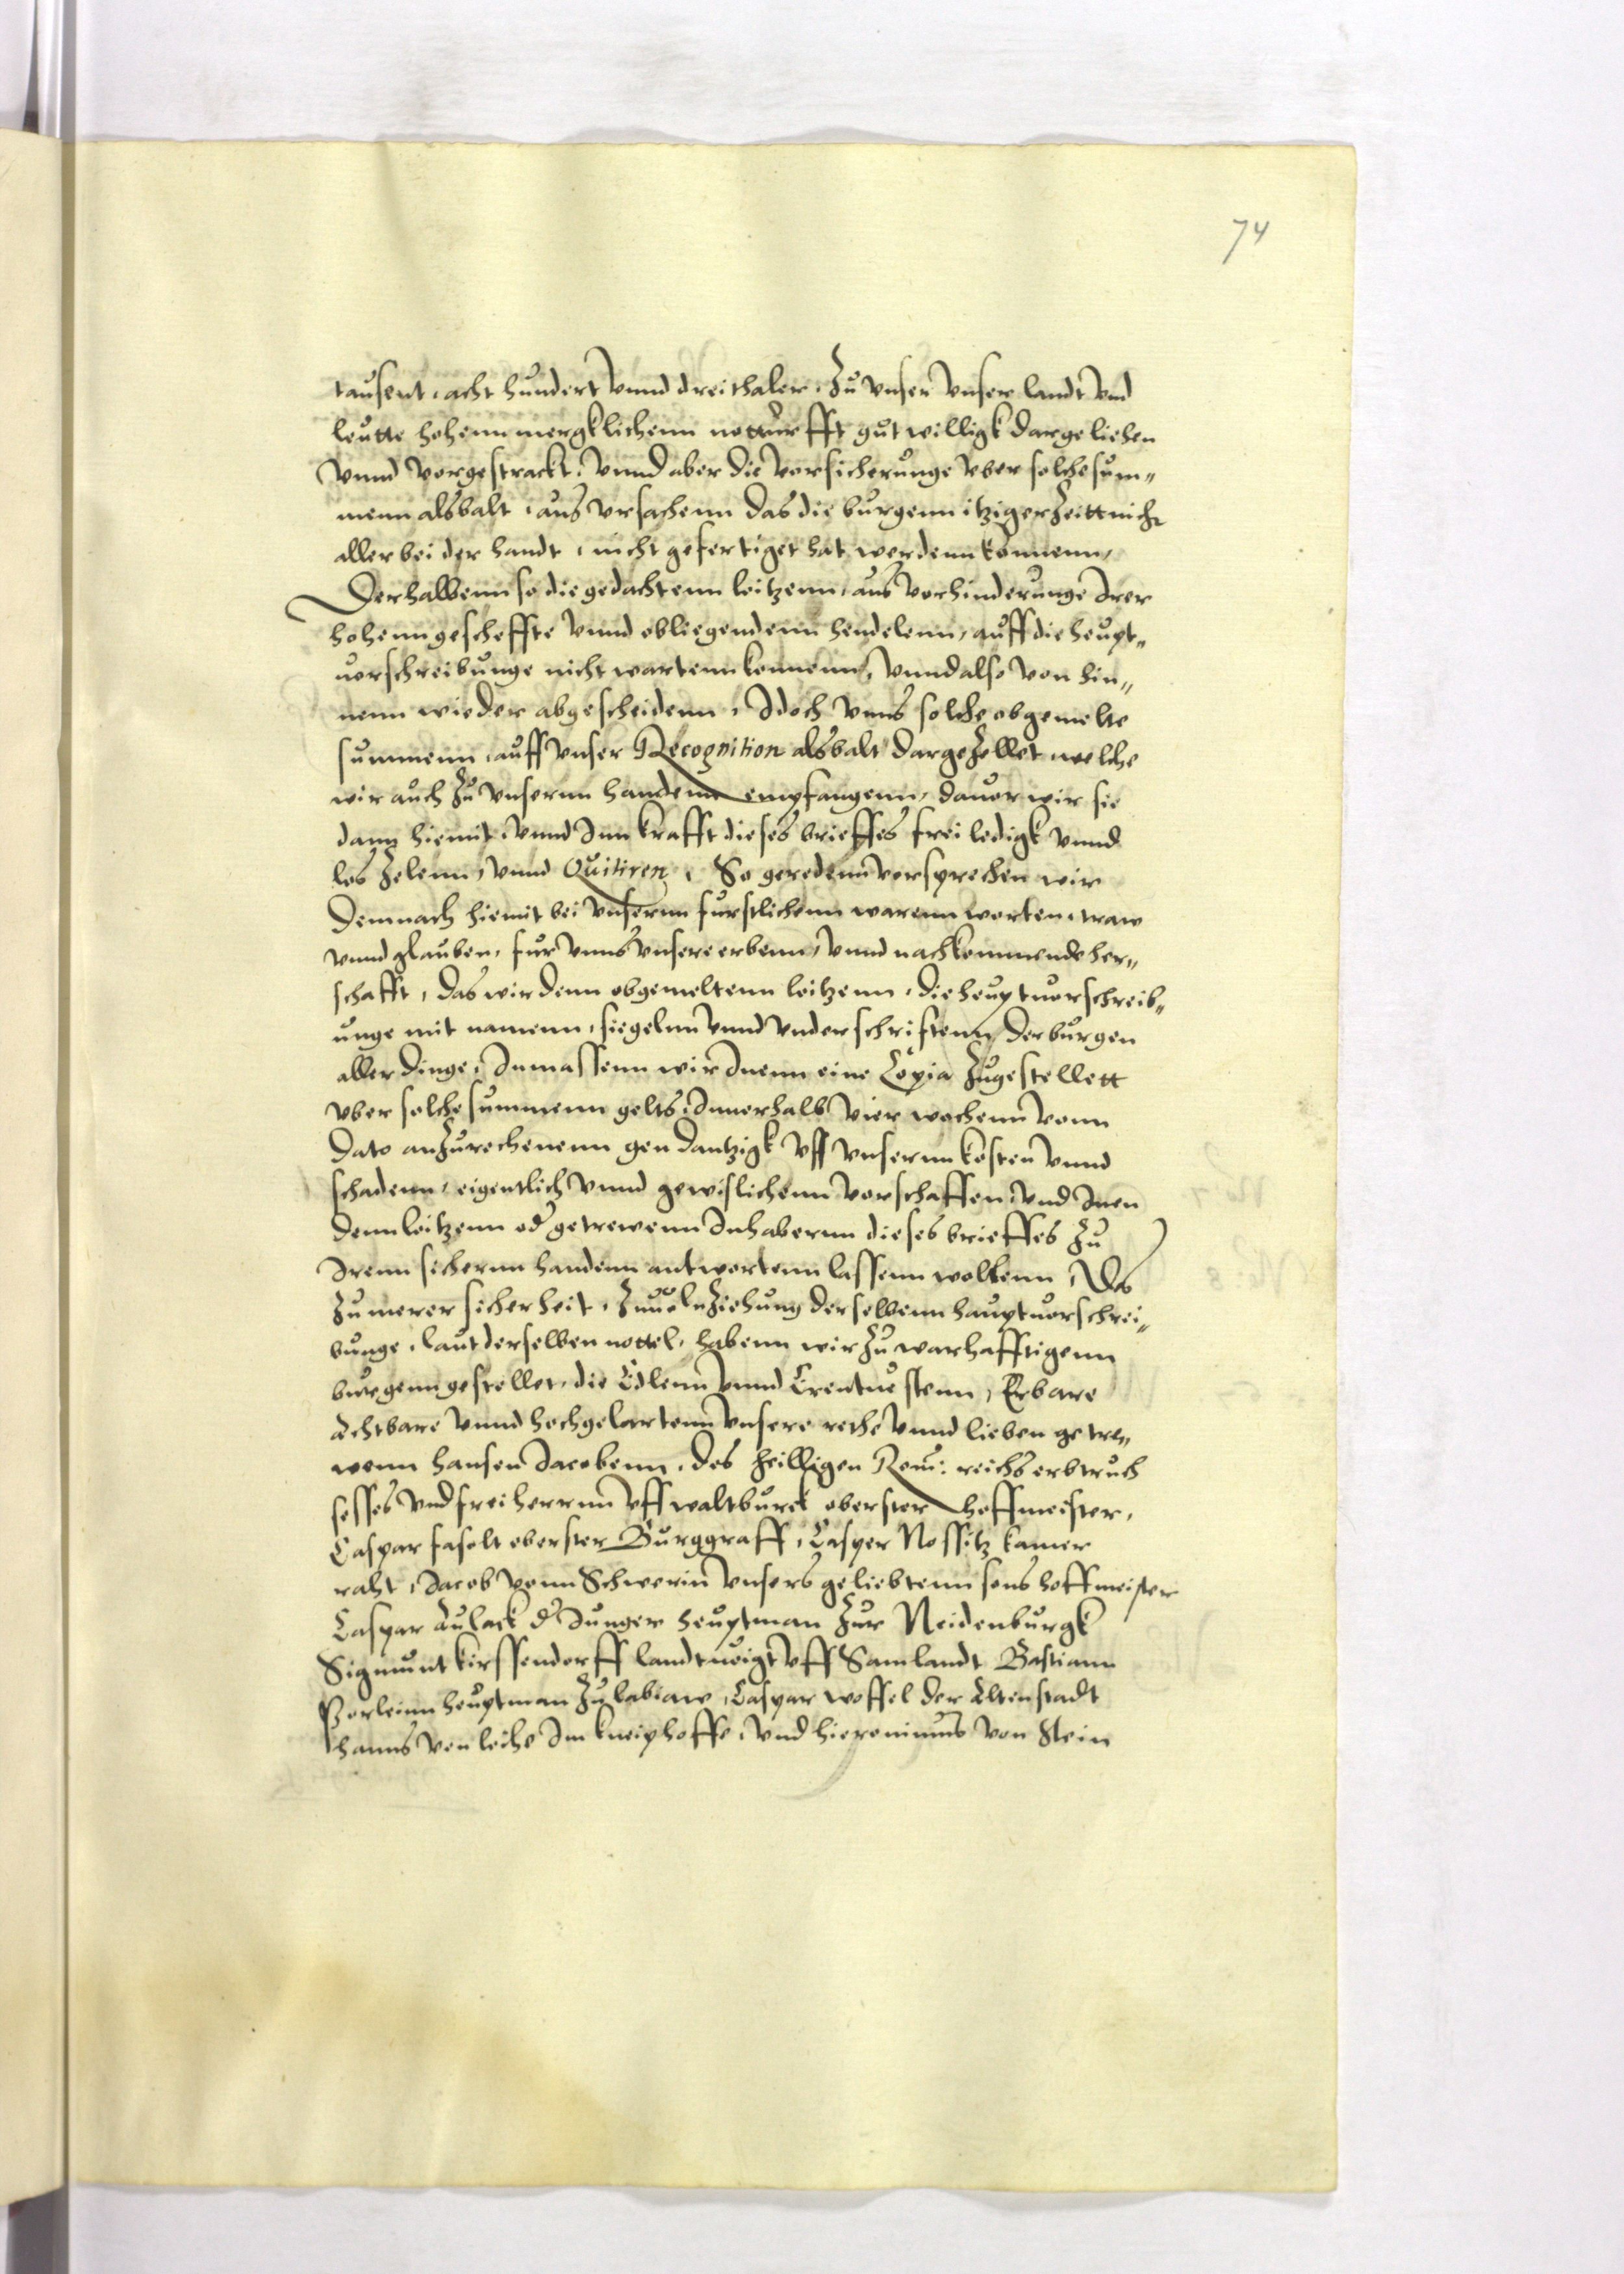 74
tausent, acht hundert vnnd drei thaler, zu vnser vnser landt vnd
leutte hohenn mergklichenn notturfft gutwilligk dargeliehen
vnnd vorgestrackt, vnnd aber die vorsicherunge vber solche sum„
menn alsbalt, aus vrsachenn das die burgenn itziger Zeitt nicht
aller bei der handt, nicht gefertiget hat werdenn konnenn,
Derhalbenn so die gedachtenn loitzenn, aus vorhinderunge Irer
hohenn gescheffte vnnd obliegendenn hendelenn, auff die heupt„
vorschreibunge nicht wartenn konnenn, vnnd also von hin„
nenn wieder abgescheidenn, Idoch vnns solche obgemelte
summenn, auff vnser Recognition alsbalt dargezellet welche
wir auch zu vnsernn handenn empfangenn, dauor wir sie
dann hiemit, vnnd Inn krafft dieses brieffes frei ledigk vnnd
los zelenn, vnnd Quitiren, So geredenn vorsprechen wir
demnach hiemit bei vnsernn furstlichenn warenn worten, traw
vnnd glauben, fur vnns vnsere erbenn, vnnd nachkommende her„
schafft, das wir denn obgemeltenn loitzenn, die heuptvorschreib„
unge mit namenn, siegelnn vnnd vnderschrifftenn der burgen
aller dinge, Inmassenn wir Inenn eine Copia zugestellett
vber solche summenn gelts, Innerhalb vier wochenn vonn
dato anzurechenenn gen dantzigk vff vnsernn kosten vnnd
schadenn, eigentlich vnnd gewislichenn vorschaffen, vnd Inen
denn loitzenn od getrewenn Inhabernn dieses brieffes zu
Irenn sichernn handenn antwortenn lassenn wollenn, Des
zu merer sicherheit, zuuolnziehung derselbenn hauptvorschrei„
bunge, laut derselben nottel, habenn wir zu warhafftigenn
burgenn gestellet, die Edlenn vnnd Erentuestenn, Erbare
Achtbare vnnd hochgelartenn vnsere rethe vnnd lieben getre„
wenn hansen Jacobenn, des heilligen Rom: reichs erbtruch
sesses vnd freiherrnn vff waltburck oberster hoffmeister,
Caspar fasolt oberster Burggraff, Casper Nossitz kamer
raht, Jacob vonn Schwerin vnsers geliebtenn sons hoffmeister
Caspar Aulack d Junger heuptman zur Neidenburgk
Sigmunt kirssendorff landtuoigt vff Samlandt Bastiann
Perleinn heuptman zu labiaw, Caspar woffel der Altenstadt
hanns von lohe Im kneiphoffe, vnd hieronimus von Stein